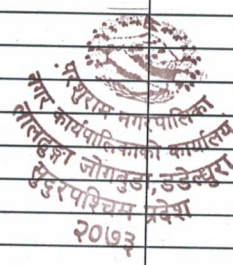 परशुराम नगरपालिका
नगर कार्यपालिकाको कार्यालय
जोगबुडा, डडेल्धुरा
सुदूरपश्चिम प्रदेश
२०७३